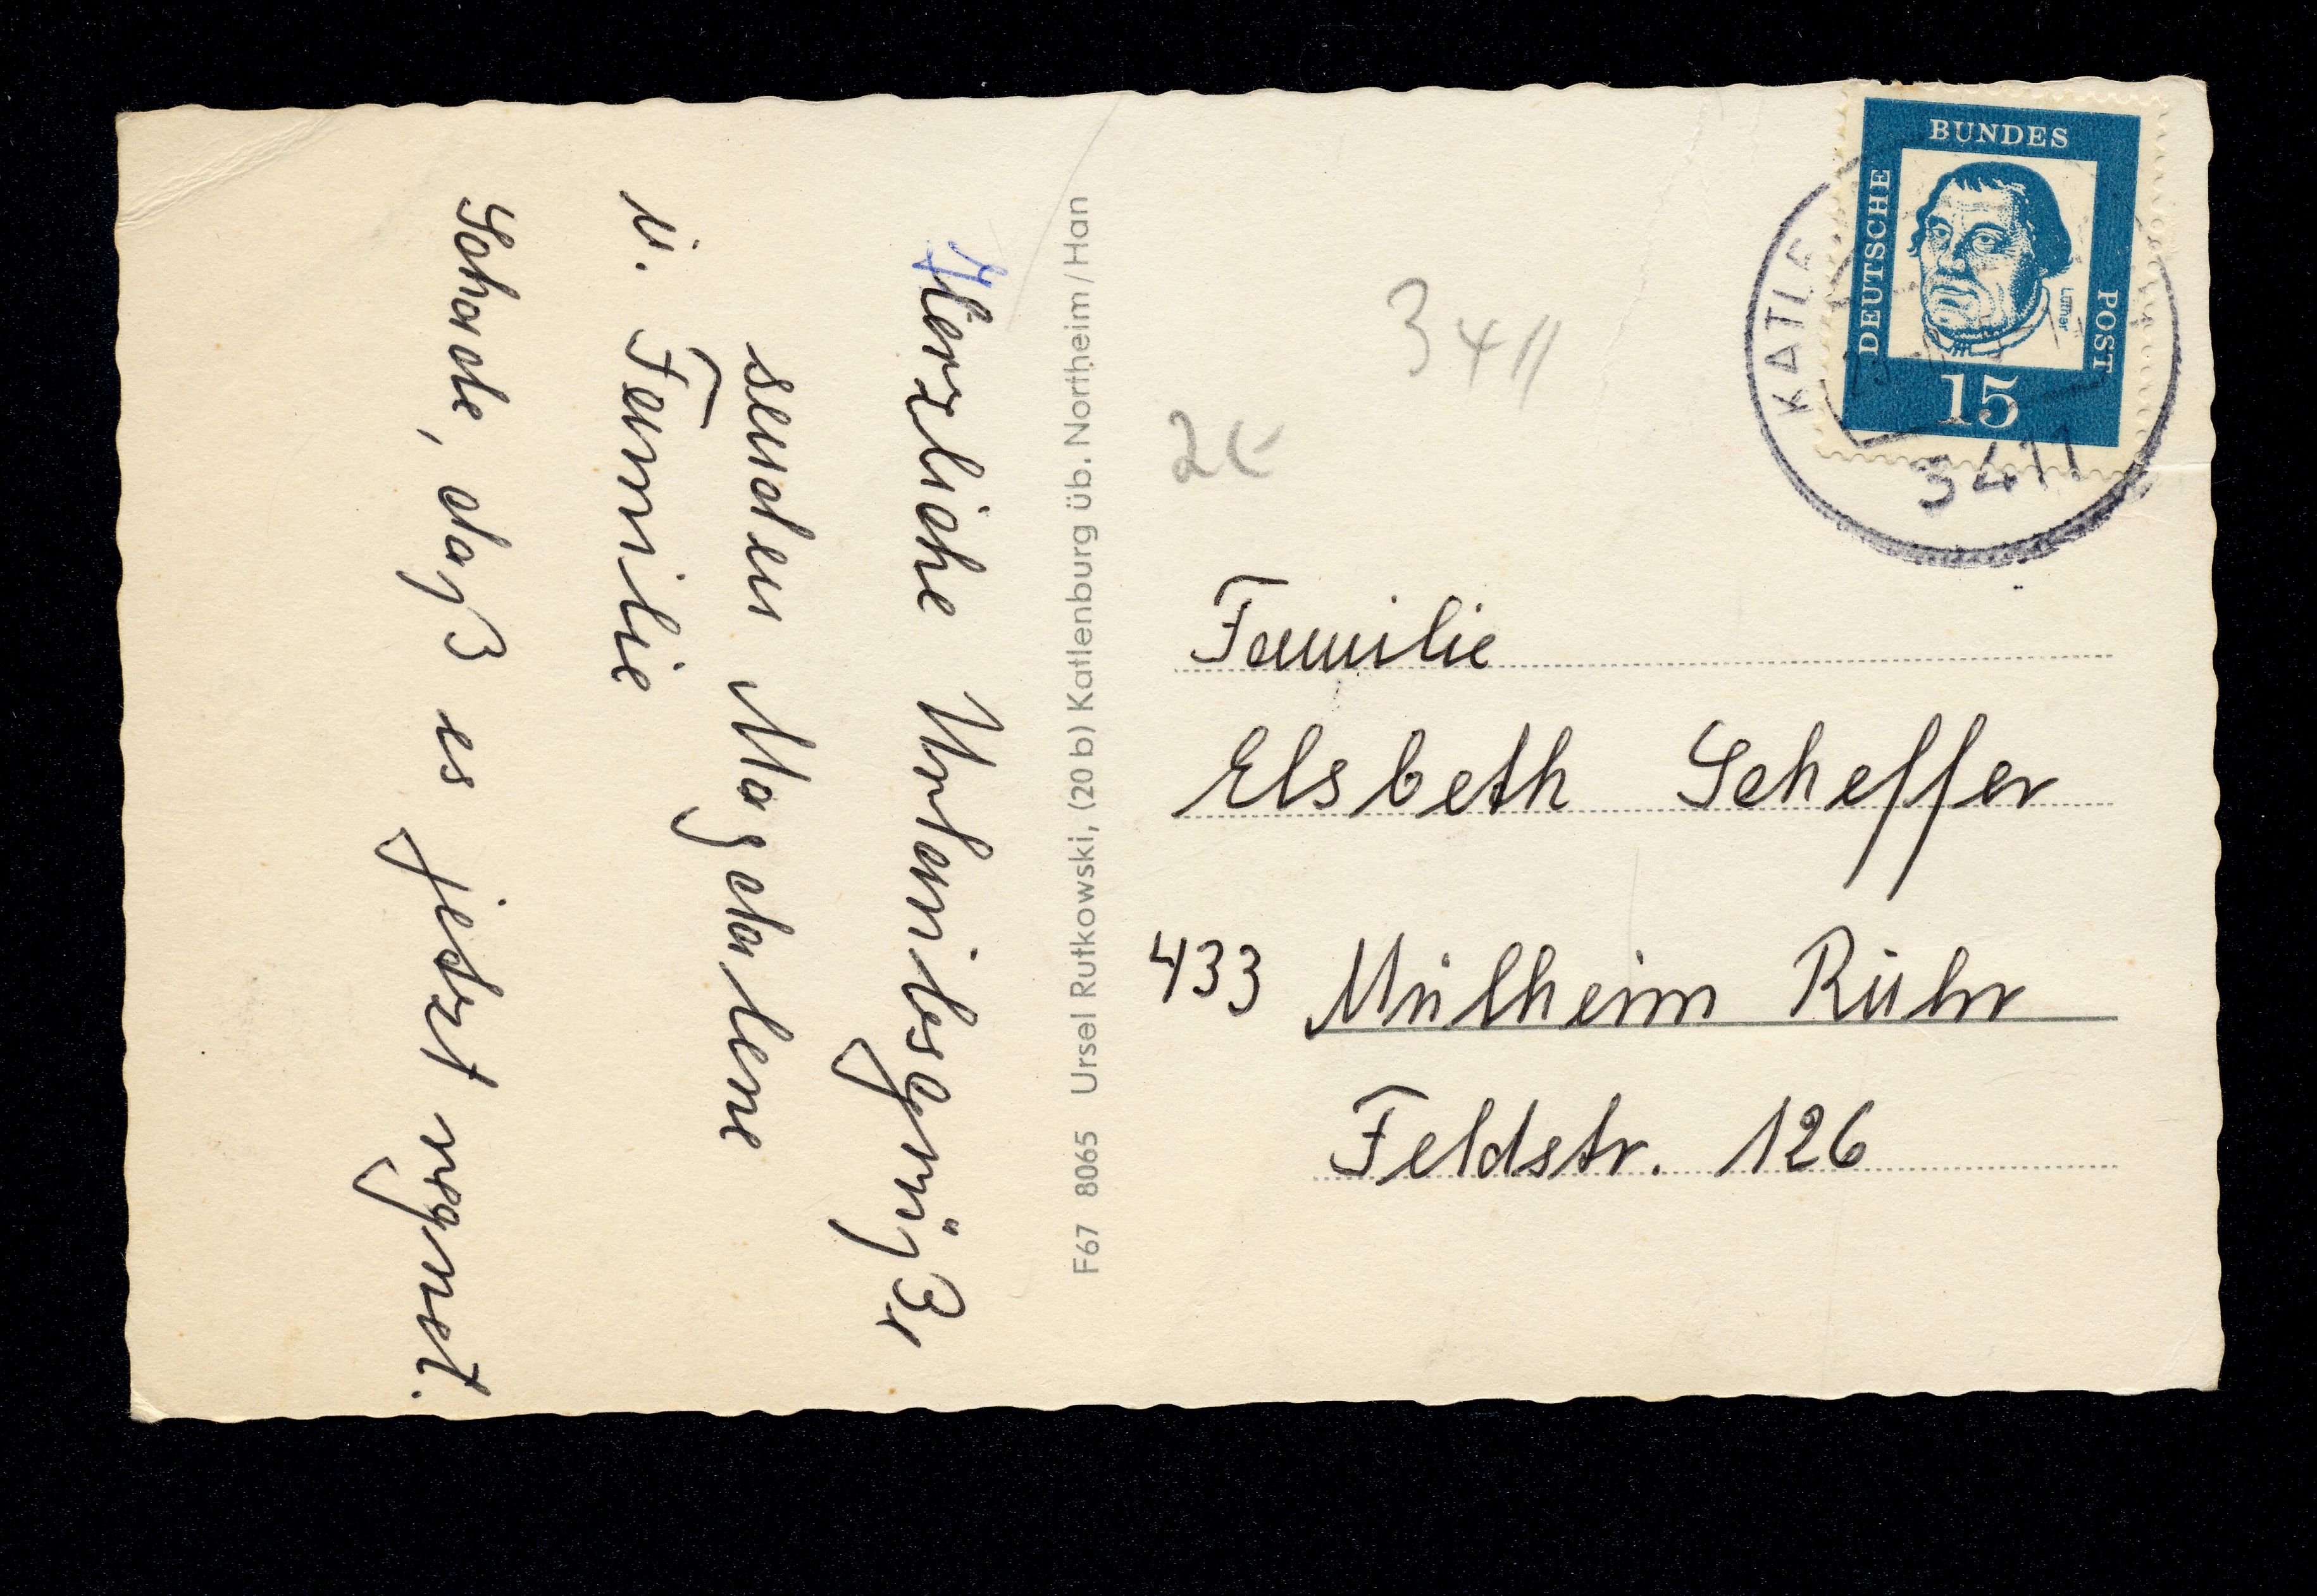 Herzliche Urlaubsgrüße
senden Magdalene
u. Familie
Schade, daß es jetzt regnet.
F67 8065 Ursel Rutkowski, (20 b) Katlenburg üb. Northeim/Han
DEUTSCHE
BUNDES
POST
Luther
15
KATLE
3411
3411
2€
Familie
Elsbeth Scheffer
433 Mülheim Ruhr
Feldstr. 126